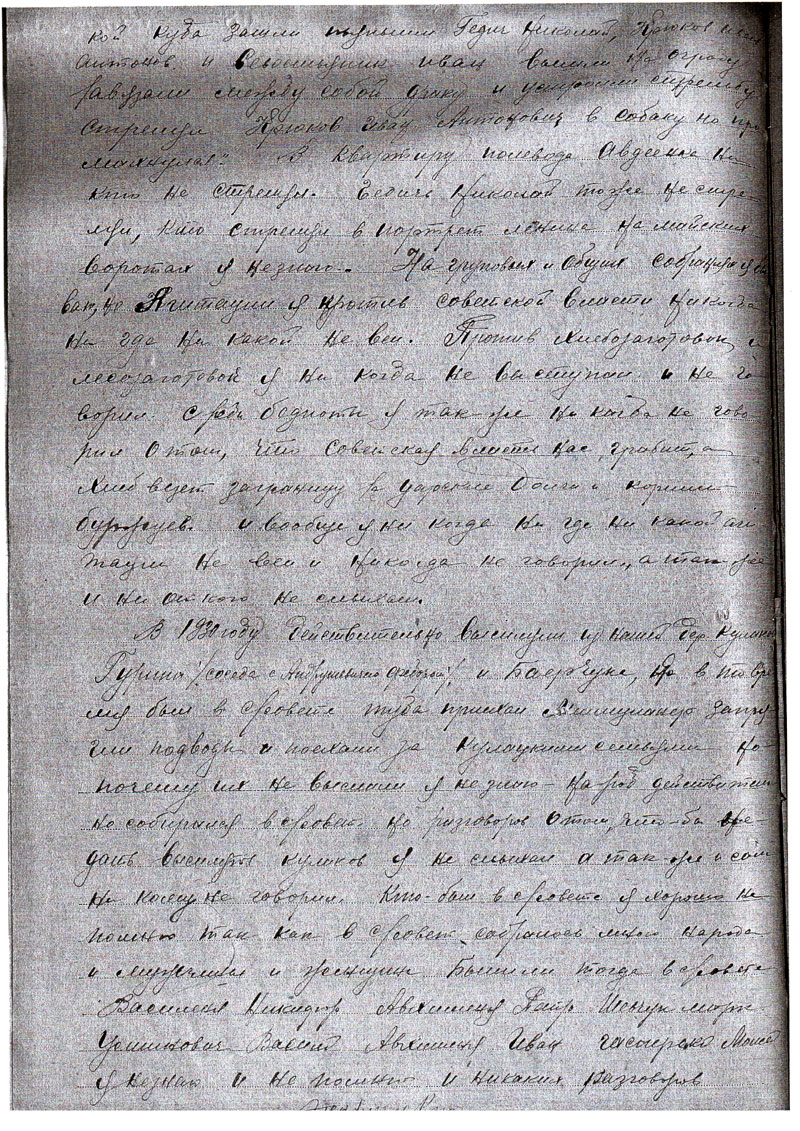 кой куда зашли пьяными Гедич Николай, Крюков Иван
Антонов и Ивах вышли на ограду
завязали между собой драку и устроили стрельбу
стрелял Крюков Иван Антонович в собаку но про
махнулся. В квартиру полевода Авдеенко ни
кто не стрелял. Гедичь Николай тоже не стре
лял, кто стрелял в портрет Ленина на майских
воротах я незнаю. На груповых и общих собраниях я бы
вал, но Агитации я против советской власти никогда
ни где ни какой не вел. Против хлебозаготовок и
лесозаготовок я ни когда не выступал и не го
ворил. среди бедноты я так-же ни когда не гово
рил о том, что советская власть нас грабит, а
хлеб везет заграницу за царские долги и кормит
буржуев. и вообще я ни когда ни где ни какой аги
тации не вел и никогда не говорил, а так же
и ни от кого не слыхал.
В 1930 году действительно высылали из нашей дер. кулаков
Гурина /соседа с / и , но в то вре
мя был в с/совете туда приехал запря
гли подводы и поехали за кулацкими семьями но
почему их не выслали я не знаю - народ действитель
но собирался в с/совет. но разговоров о том, что-бы не
дать выслать кулаков я не слыхал а так же и сам
ни кому не говорил. Кто-был в с/совете я хорошо не
помню так как в с/совет собралось много народа
и мужчины и женщин были тогда в с/совете
Никифор Петр Шевчук
Василий Иван
я незнаю и не помню и никаких разговоров